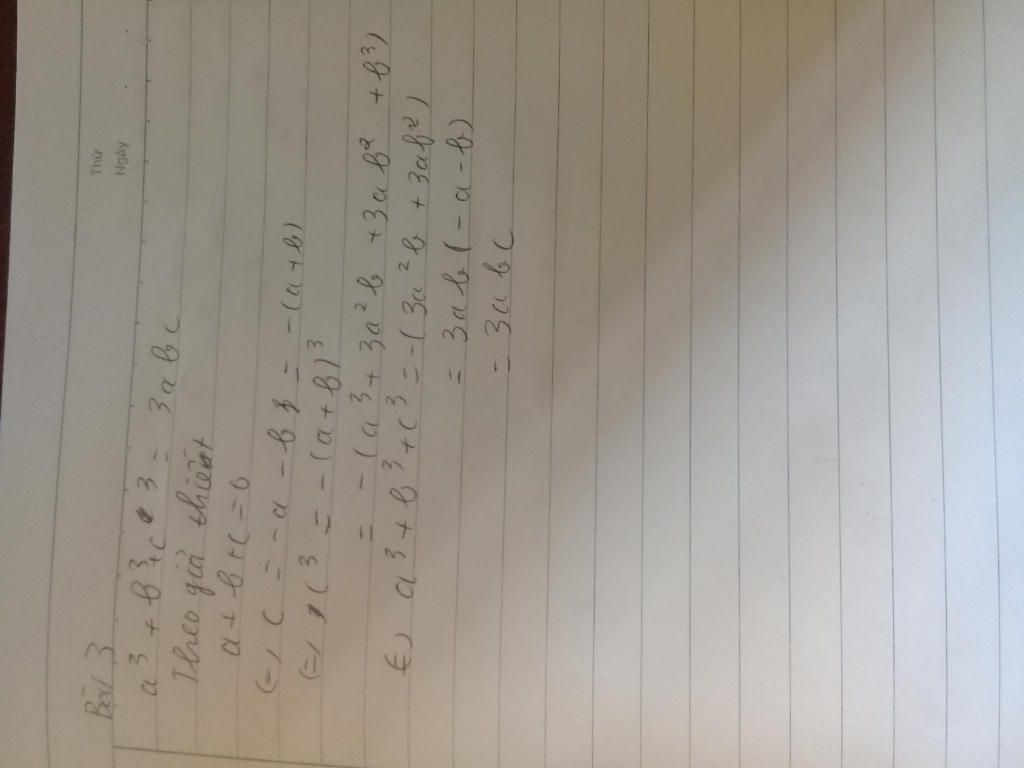 Thứ
Ngày
Bài 3
a³ + b³ + c³ = 3abc
Theo giả thiết
a + b + c = 0
(=) c = -a - b = -(a+b)
(=) c³ = -(a+b)³
= -(a³ + 3a²b + 3ab² + b³)
(=) a³ + b³ + c³ = -(3a²b + 3ab²)
= 3ab(-a-b)
= 3abc